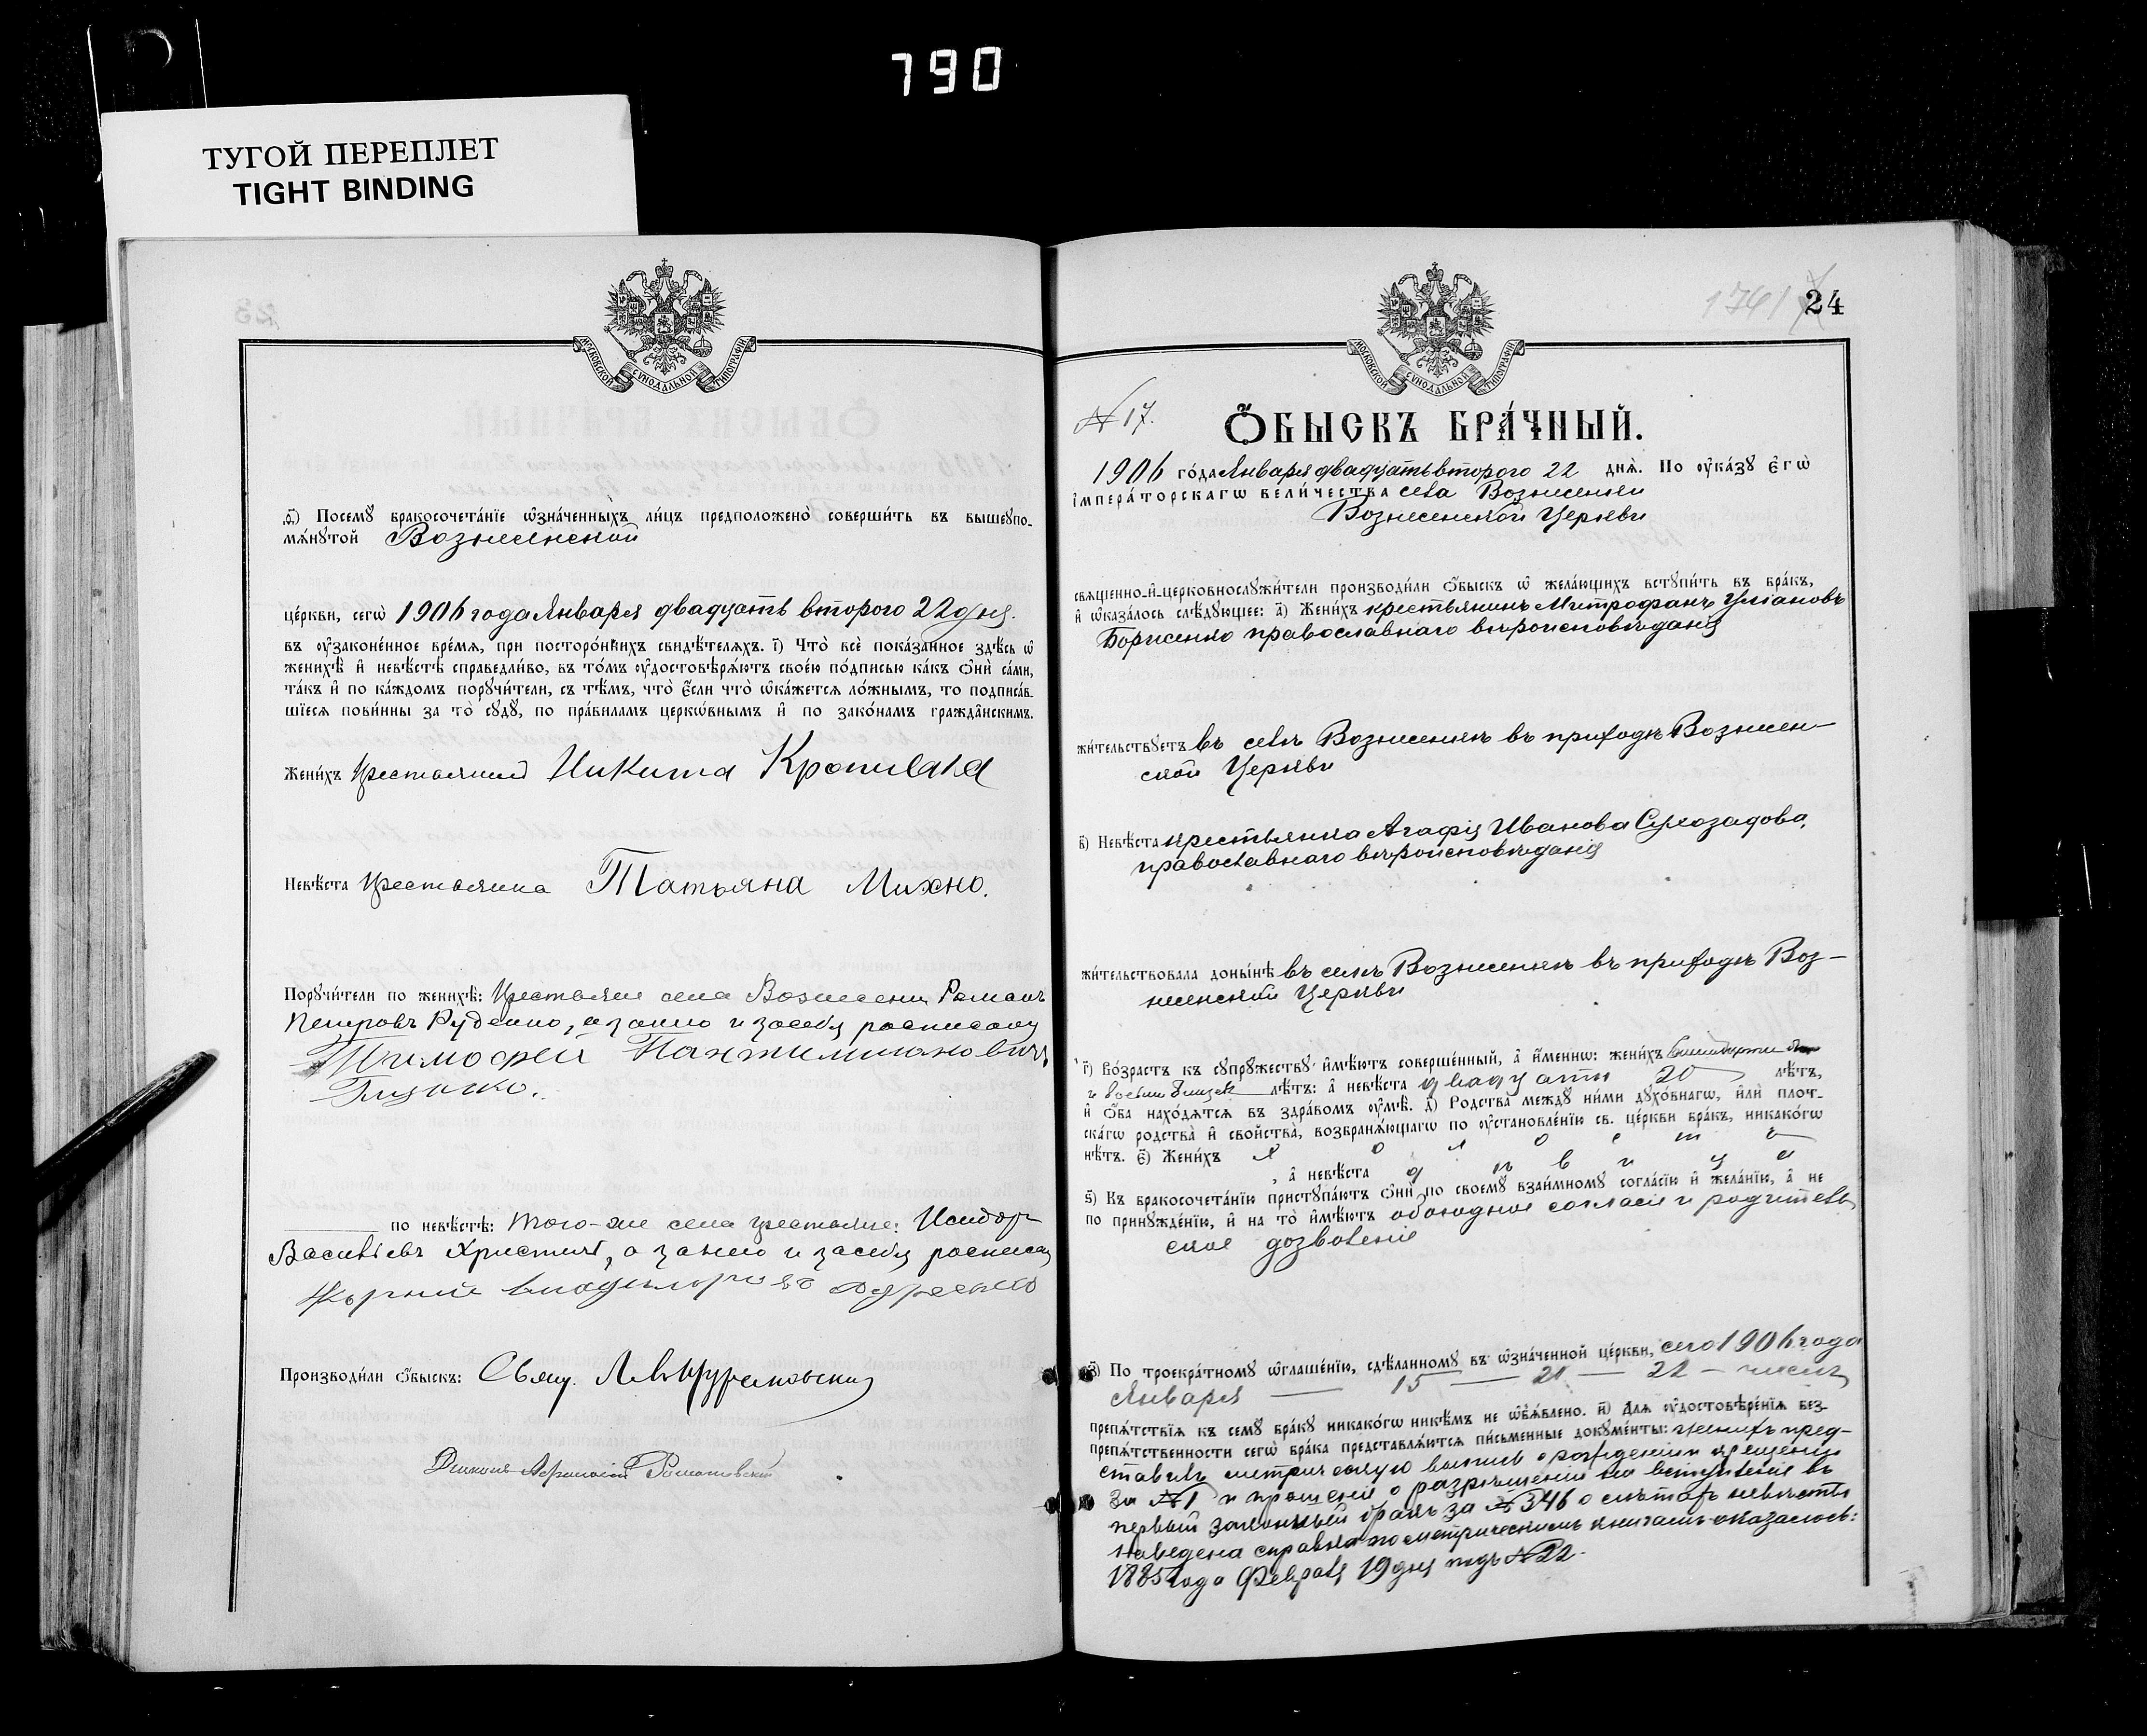 790
ТУГОЙ ПЕРЕПЛЕТ
TIGHT BINDING
МОСКОВСКОЙ СѴНОДАЛЬНОЙ ТИПОГРАФІИ
ѳ҃) Посемꙋ̀ бракосочета́нїе ѡ҆зна́ченныхъ ли́цъ предположено̀ соверши́ть въ вышеꙋпо-
мѧ́нꙋтой Вознесенской
це́ркви, сегѡ̀ 1906 года Января двадцать второго 22 дня.
въ оу҆законе́нное вре́мѧ, при посторо́ннихъ свидѣ́телѧхъ. і҃) Что̀ всѐ пока́занное здѣ́сь ѡ҆
женихѣ̀ и҆ невѣ́стѣ справедли́во, въ то́мъ оу҆достовѣрѧ́ютъ свое́ю по́дписью ка́къ ѻ҆нѝ са́ми,
та́къ и҆ по ка́ждомъ порꙋчи́тели, съ тѣ́мъ, что̀ є҆́сли что̀ ѡ҆ка́жетсѧ ло́жнымъ, то подписа́в-
шїесѧ пови́нны за то̀ сꙋдꙋ̀, по пра́виламъ церко́внымъ и҆ по зако́намъ гражда́нскимъ.
Жени́хъ Крестьянин Никита Кропивка
Невѣ́ста Крестьянка Татьяна Михно.
Порꙋчи́тели по женихѣ̀: Крестьяне села Вознесени Романъ
Петровъ Руденко, а за него и за себя росписался
Тимофей Пантилимоновичъ
Глушко.
по невѣ́стѣ: того-же села крестьяне: Исидоръ
Васильевъ Христич, а за него и за себя росписался
Производи́ли ѻ҆́быскъ: Свящ.
Диаконъ Афанасій
24
МОСКОВСКОЙ СѴНОДАЛЬНОЙ ТИПОГРАФІИ
№ 17.
Ѻ҆́БЫСКЪ БРА́ЧНЫЙ.
1906 го́да Января двадцать второго 22 днѧ̀. По оу҆ка́зꙋ Є҆гѡ̀
І҆мпера́торскагѡ вели́чества села Вознесенки
Вознесенской Церкви
свѧще́нно-и҆-церковнослꙋжи́тели производи́ли ѻ҆́быскъ ѡ҆ жела́ющихъ встꙋпи́ть въ бра́къ,
и҆ ѡ҆каза́лось слѣ́дꙋющее: а҃) Жени́хъ крестьянинъ Митрофанъ Уліановъ
Борисенко православнаго вѣроисповѣданія
жи́тельствꙋетъ въ селѣ Вознесенкѣ въ приходѣ Вознесен-
ской Церкви
в҃) Невѣ́ста крестьянка Агафія Иванова Сухозадова,
православнаго вѣроисповѣданія
жи́тельствовала доны́нѣ въ селѣ Вознесенкѣ въ приходѣ Воз-
несенской Церкви
г҃) Во́зрастъ къ сꙋпрꙋ́жествꙋ и҆мѣ́ютъ соверше́нный, а҆ и҆́меннѡ: жени́хъ
лѣ́тъ: а҆ невѣ́ста двадцати 20 лѣ́тъ,
и҆ ѻ҆́ба нахо́дѧтсѧ въ здра́вомъ оу҆мѣ̀. д҃) Родства̀ междꙋ̀ ни́ми дꙋхо́внагѡ, и҆лѝ плот-
ска́гѡ родства̀ и҆ сво́йства, возбранѧ́ющагѡ по оу҆становле́нїю св. це́ркви бра́къ, никако́гѡ
нѣ́тъ. є҃) Жени́хъ х о л о с т ъ
, а҆ невѣ́ста д ѣ в и ц а
ѕ҃) Къ бракосочета́нїю пристꙋпа́ютъ ѻ҆нѝ по своемꙋ̀ взаи́мномꙋ согла́сїю и҆ жела́нїю, а҆ не
по принꙋжде́нїю, и҆ на то̀ и҆мѣ́ютъ обоюдное согласіе и родитель-
ское дозволеніе
з҃) По троекра́тномꙋ ѡ҆глаше́нїю, сдѣ́ланномꙋ въ ѡ҆зна́ченной це́ркви, сего 1906 года
Января — 15 — 21 — 22 — чиселъ
препѧ́тствїѧ къ семꙋ̀ бра́кꙋ никако́гѡ никѣ́мъ не ѡ҆бъѧ́влено. и҃) Длѧ оу҆достовѣре́нїѧ без-
препѧ́тственности сегѡ̀ бра́ка представлѧ́ютсѧ пи́сьменные докꙋме́нты: женихъ пред-
ставилъ метрическую выпись о рожденіи и крещеніи
за №1 и прошеніе о разрѣшеніи на вступленіе въ
первый законный бракъ за № 346 о лѣтахъ невѣсты
наведена справка по метрическимъ книгамъ оказалось:
1885 года Февраля 19 дня подъ № 22.